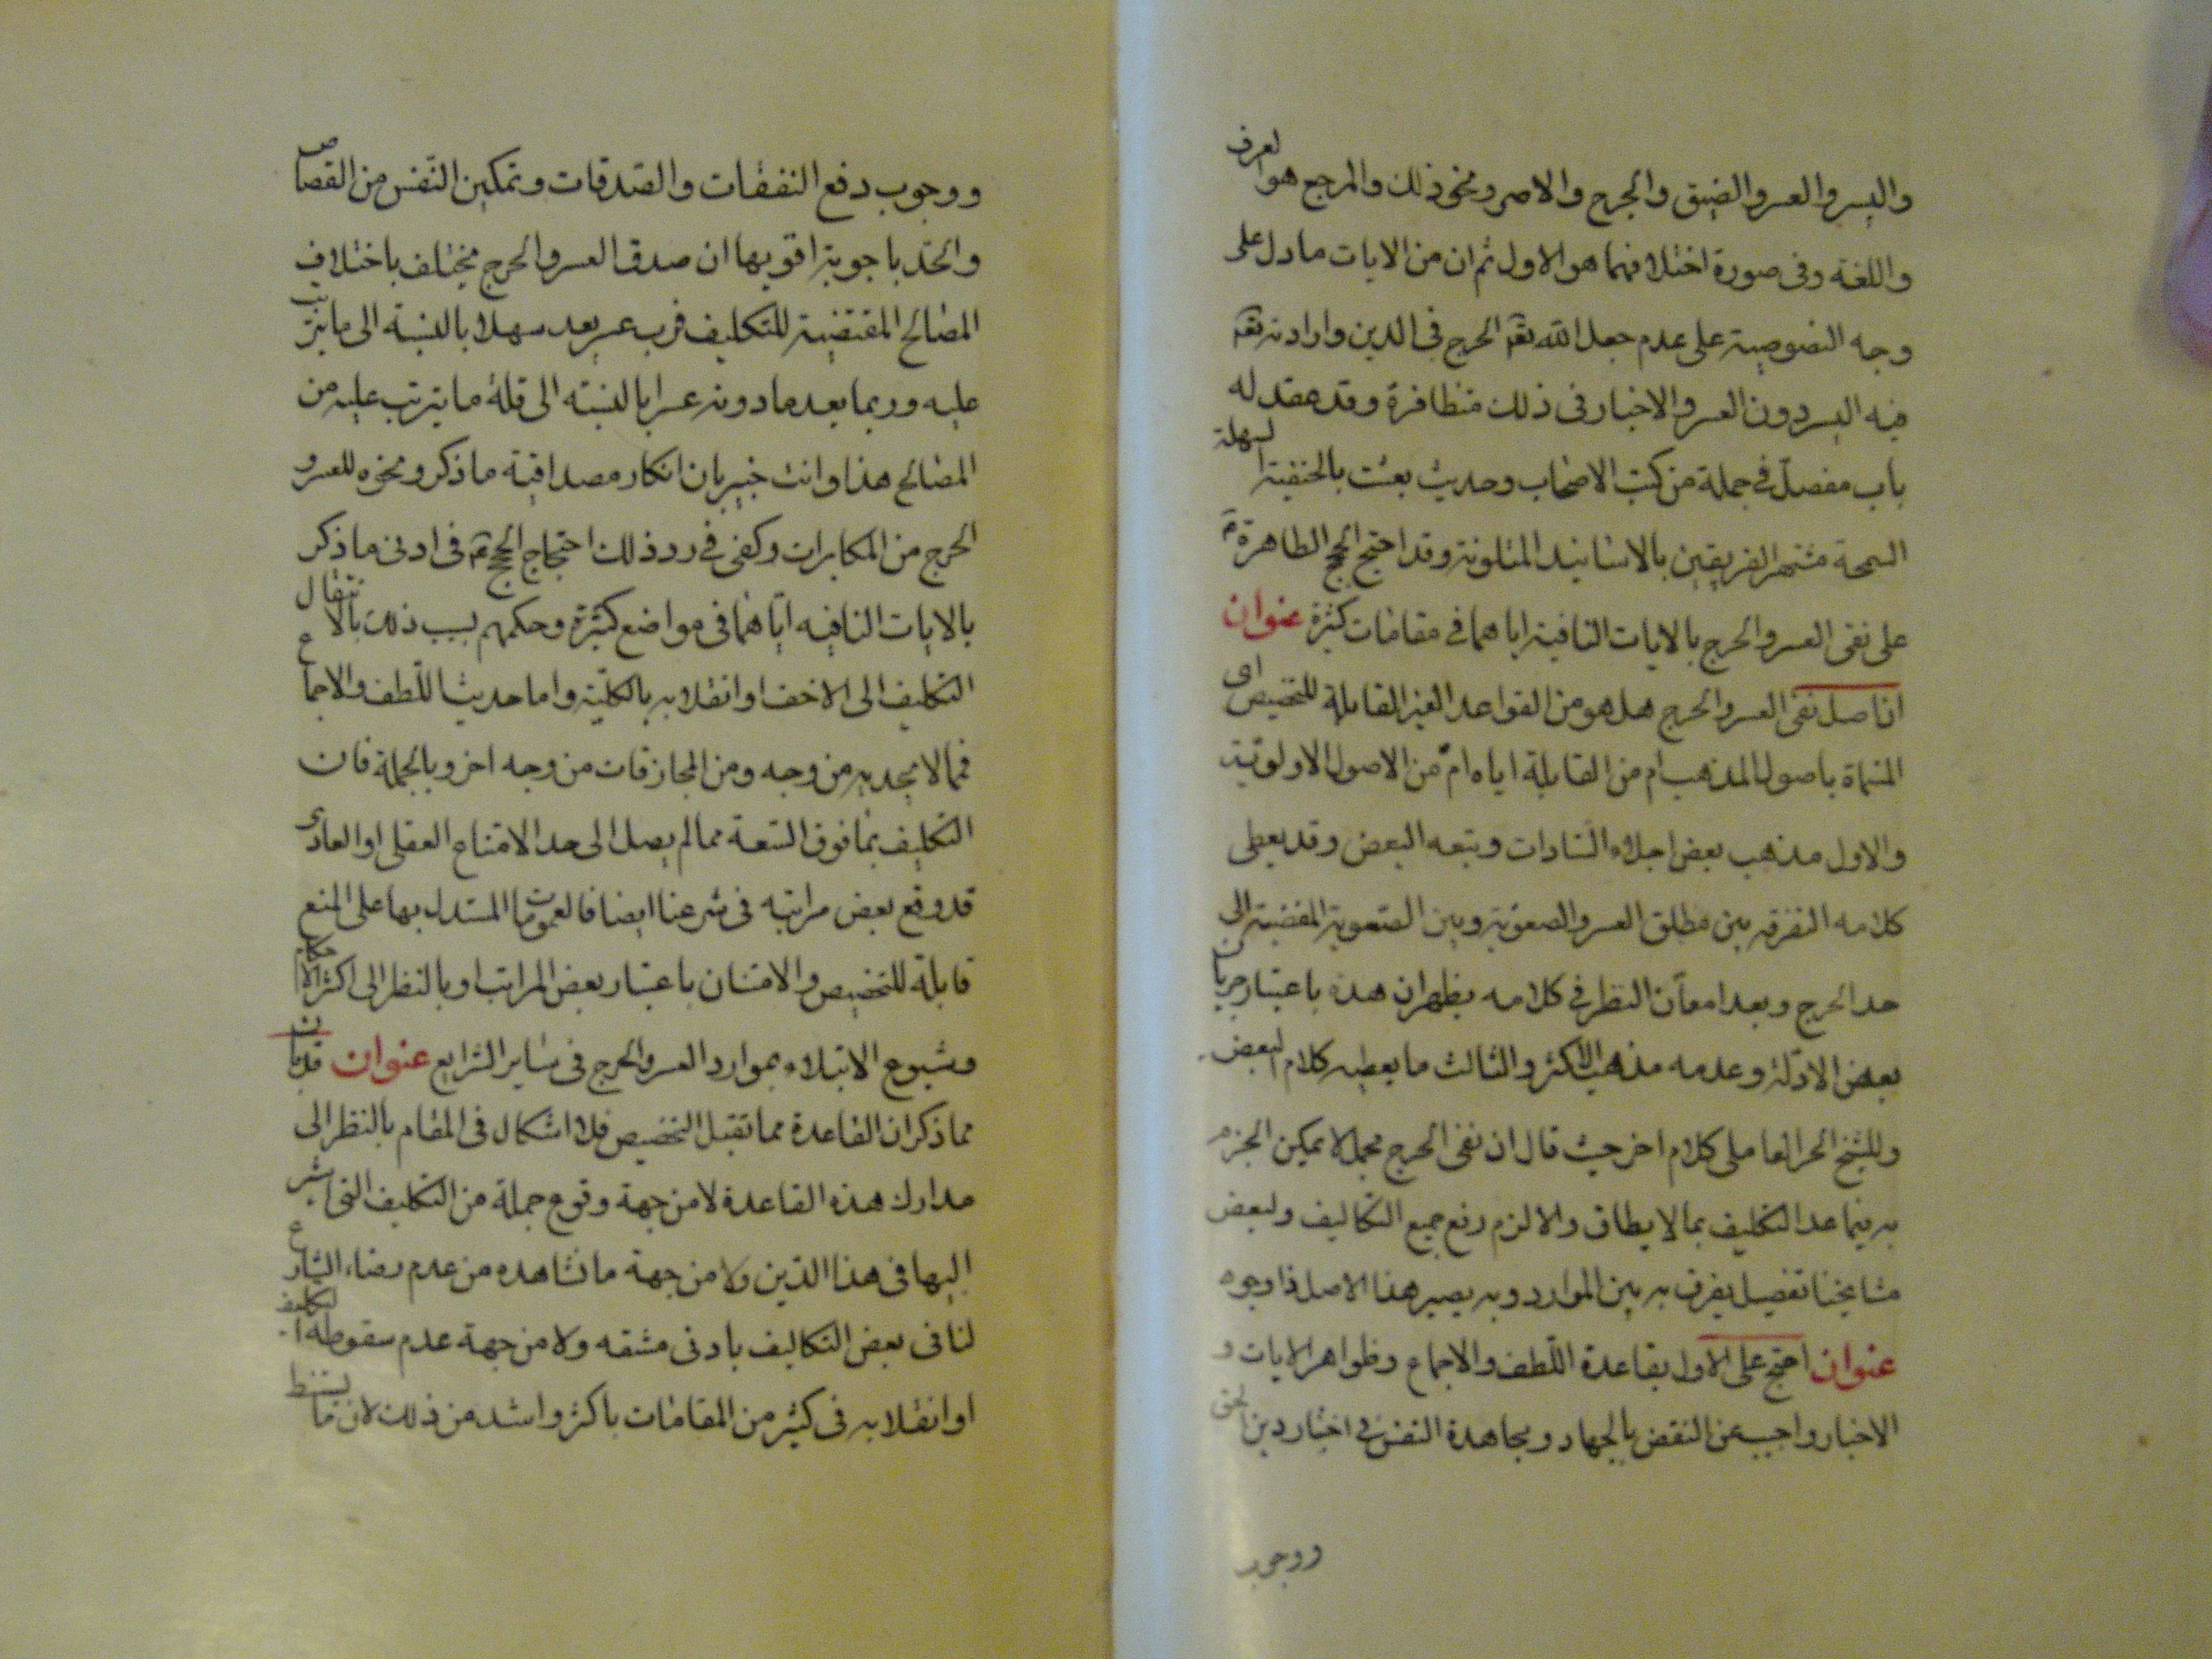 واليسر والعسر والضيق والحرج والاصر ونحو ذلك والمرجع هو العرف
واللغة وفى صورة اختلافهما هو الاول ثم ان من الايات ما دل على
وجه النصوصية على عدم جعل الله تعم الحرج فى الدين وارادته تعم
فيه اليسر دون العسر والاخبار فى ذلك متظافرة وقد عقد له
باب مفصل فى جملة من كتب الاصحاب وحديث بعثت بالحنفية السهلة
السمحة مشتهر الفريقين بالاسانيد المتلونة وقد احتج الحجج الطاهرة ع
على نفى العسر والحرج بالايات النافية اياهما فى مقامات كثيرة عنوان
ان اصل نفى العسر والحرج هل هو من القواعد الغير القابلة للتخصيص اى
المسماة باصول المذهب ام من القابلة اياه ام من الاصول الاولوية
والاول مذهب بعض اجلاء السادات وتبعه البعض وقد يعطى
كلامه التفرقه بين مطلق العسر والصعوبة وبين الصعوبة المفضية الى
حد الحرج وبعد امعان النظر فى كلامه يظهر ان هذه باعتبار جريان
بعض الادلة وعدمه مذهب الاكثر والثالث ما يعطيه كلام البعض
وللشيخ الحر العاملى كلام اخر حيث قال ان نفى الحرج مجمل لا يمكن الجزم
به فيما عدا التكليف بما لا يطاق والا لزم رفع جميع التكاليف ولبعض
مشايخنا تفصيل يفرق به بين الموارد وبه يصير هذا الاصل ذا وجوه
عنوان احتج على الاول بقاعدة اللطف والاجماع وظواهر الايات و
الاخبار واجيب عن النقض بالجهاد ومجاهدة النفس فى اختيار دين الحق
ووجوب
ووجوب دفع النفقات والصدقات وتمكين النفس من القصاص
والحد باجوبة اقويها ان صدق العسر والحرج يختلف باختلاف
المصالح المقتضية للتكليف فرب عسر يعد سهلا بالنسبة الى ما يترتب
عليه وربما يعد ما دونه عسرا بالنسبته الى قلة ما يترتب عليه من
المصالح هذا وانت خبير بان انكار مصداقية ما ذكر ونحوه للعسر و
الحرج من المكابرات وكفى فى رد ذلك احتجاج الحجج ع فى ادنى ما ذكر
بالايات النافيه اياهما فى مواضع كثيرة وحكمهم بسبب ذلك بالانتقال
التكليف الى الاخف او انقلابه بالكلية واما حديثا اللطف والاجماع
فمما لا يجديه من وجه ومن المجازفات من وجه اخر وبالجملة فان
التكليف بما فوق السعة مما لم يصل الى حد الامتناع العقلى او العادى
قد وقع بعض مراتبه فى شرعنا ايضا فالعمومات المستدل بها على المنع
قابلة للتخصيص والامتنان باعتبار بعض المراتب او بالنظر الى اكثر الاحكام
وشيوع الابتلاء بموارد العسر والحرج فى ساير الشرايع عنوان قد بان
مما ذكر ان القاعدة مما تقبل التخصيص فلا اشكال فى المقام بالنظر الى
مدارك هذه القاعدة لا من جهة وقوع جملة من التكليف التى اشير
اليها فى هذا الدين ولا من جهة ما نشاهده من عدم رضاء الشارع
لنا فى بعض التكاليف بادنى مشقه ولا من جهة عدم سقوط التكليف
او انقلابه فى كثير من المقامات باكثر واشد من ذلك لان ما يستنبط